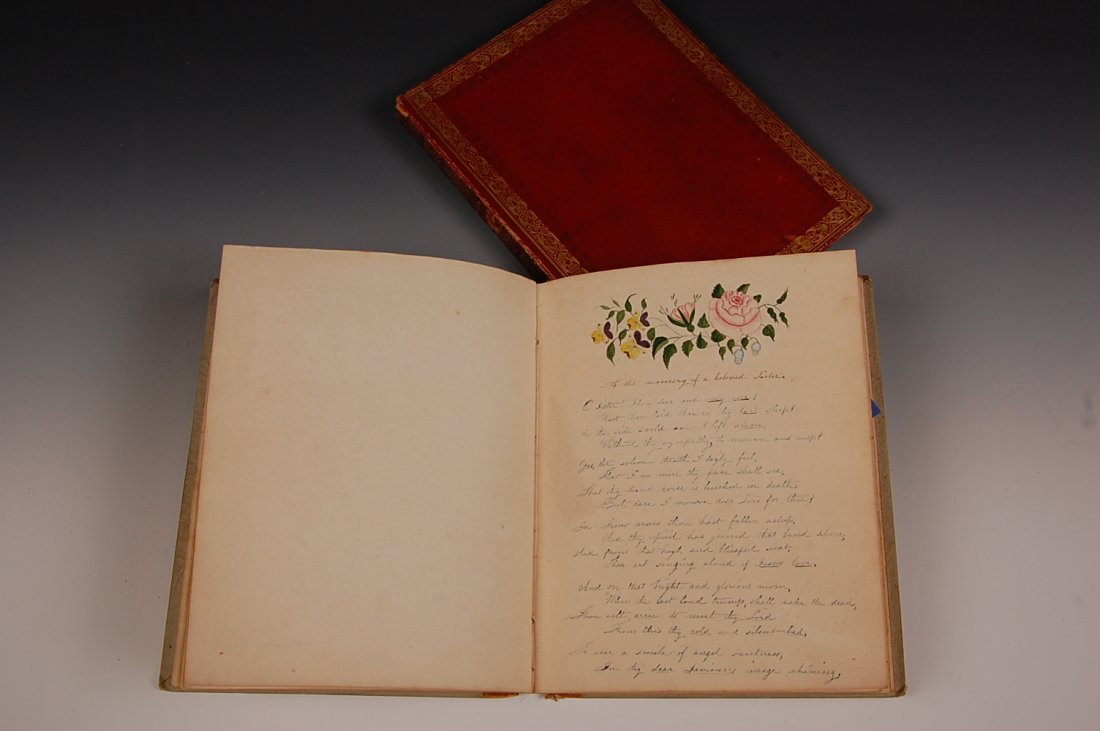 To the memory of a beloved Sister.
O Sister! thou dear and only one!
That thou laid thee in thy last sleep!
In the wide world am I left alone,
Without thy sympathy to mourn and weep!
Yes, the solemn truth I daily feel,
That I no more thy face shall see,
That thy voice is hushed in death
But dare I mourn dear Lois for thee!
In Jesus arms thou hast fallen asleep,
And thy spirit has joined that band above,
And from that high and blissful seat,
Thou art singing aloud of Jesus love.
And on that bright and glorious morn,
When the last loud trump, shall wake the dead,
Thou wilt arise to meet thy Lord
From this thy cold and silent bed,
I see a smile of angel sweetness,
In thy dear Saviour's image shining,